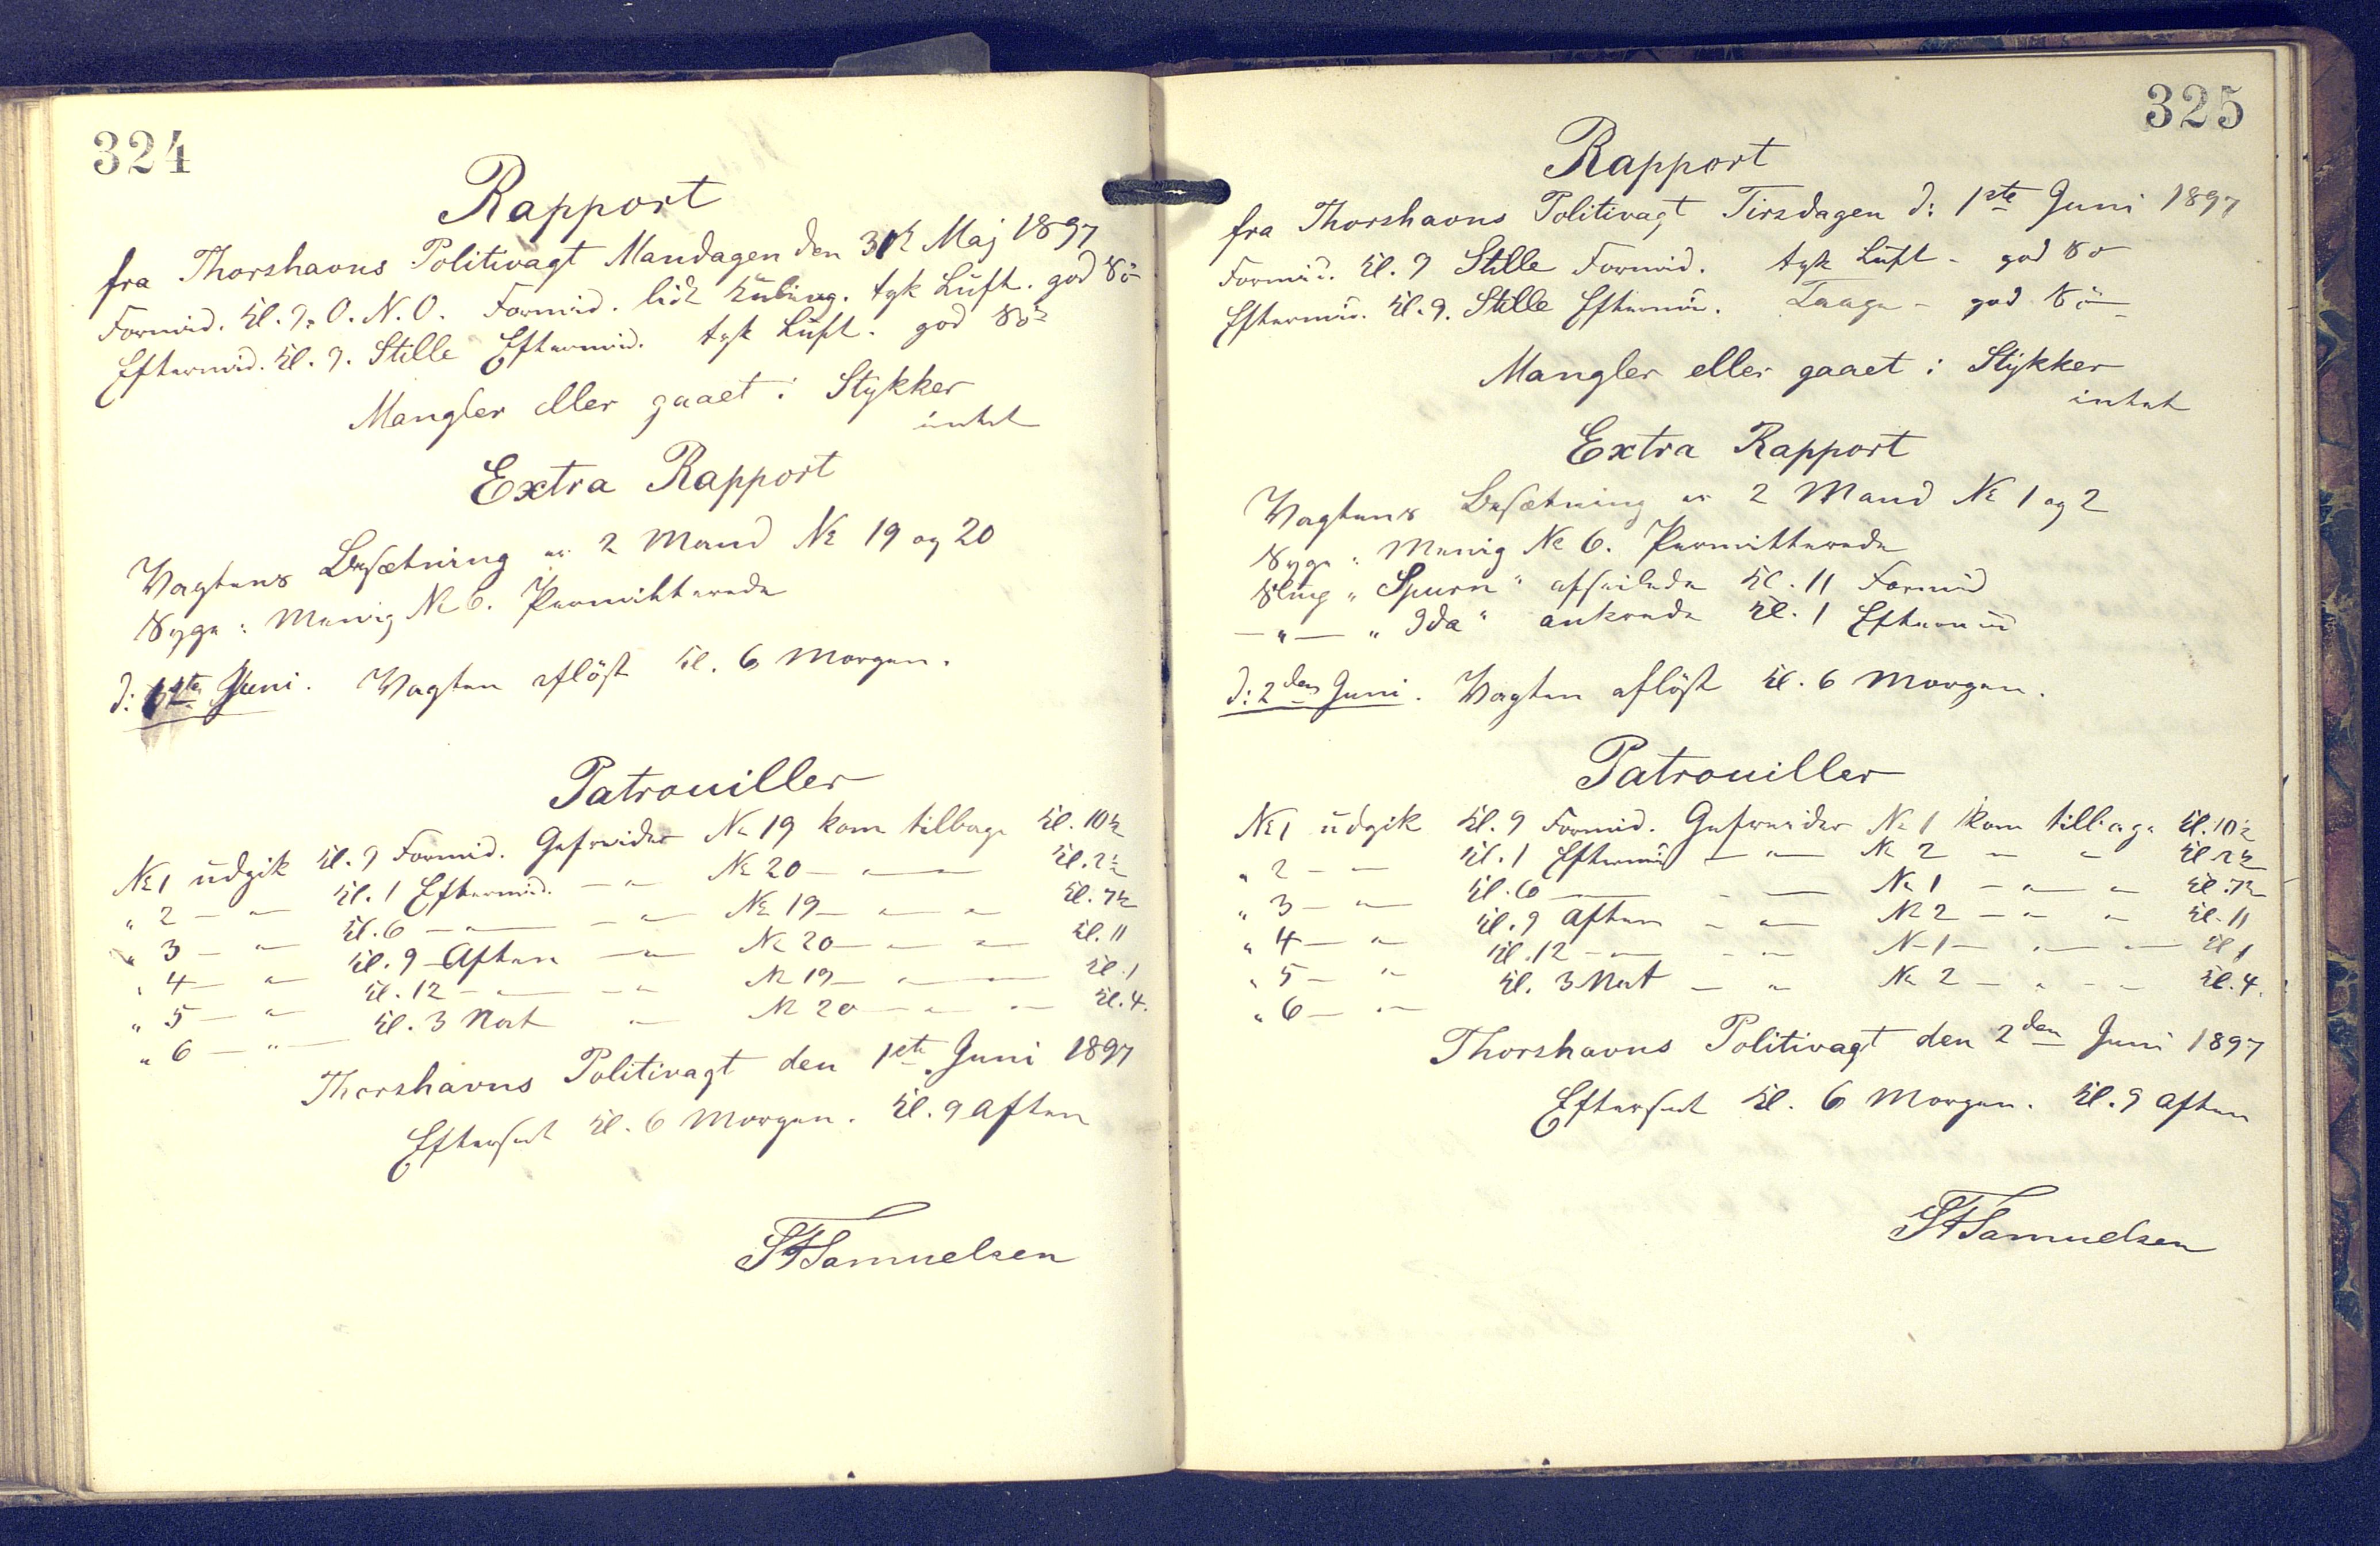 324
Rapport
fra Thorshavns Politivagt Mandagen den 31te Maj 1897
Formid. Kl. 9. O.N.O. Formid. lidt Kuling. tyk Luft. god Sö
Eftermid. Kl. 9. Stille Eftermid. tyk Luft. god Sö
Mangler eller gaaet i Stykker
intet
Extra Rapport
Vagtens Besætning er 2 Mand No 19 og 20
Syge: Menig No 6. Permitterede
d: 1ste Juni. Vagten aflöst Kl. 6 Morgen.
Patrouiller
No 1 udgik Kl. 9 Formid. Gefreider No 19 kom tilbage Kl. 10½
" 2 — " — Kl. 1 Eftermid. — " — No 20 — " — " — Kl. 2½
" 3 — " — Kl. 6 — " — — " — No 19 — " — " — Kl. 7½
" 4 — " — Kl. 9 Aften — " — No 20 — " — " — Kl. 11
" 5 — " — Kl. 12 — " — — " — No 19 — " — " — Kl. 1
" 6 — " — Kl. 3 Nat — " — No 20 — " — " — Kl. 4.
Thorshavns Politivagt den 1ste Juni 1897
Efterset Kl. 6 Morgen. Kl. 9 Aften
Samuelsen
325
Rapport
fra Thorshavns Politivagt Tirsdagen d: 1ste Juni 1897
Formid. Kl. 9 Stille Formid. tyk Luft - god Sö
Eftermid. Kl. 9. Stille Eftermid. Taage - god Sö
Mangler eller gaaet i Stykker
intet
Extra Rapport
Vagtens Besætning er 2 Mand No 1 og 2
Syge: Menig No 6. Permitterede
Slup "Spurn" afseilede Kl. 11 Formid
— " — "Ida" ankrede Kl. 1 Eftermid
d: 2den Juni. Vagten aflöst Kl. 6 Morgen.
Patrouiller
No 1 udgik Kl. 9 Formid. Gefreider No 1 kom tilbage Kl. 10½
" 2 — " — Kl. 1 Eftermid — " — No 2 — " — " — Kl 2½
" 3 — " — Kl. 6 — " — — " — No 1 — " — " — Kl. 7½
" 4 — " — Kl. 9 Aften — " — No 2 — " — " — Kl. 11
" 5 — " — Kl. 12 — " — — " — No 1 — " — " — Kl 1
" 6 — " — Kl. 3 Nat — " — No 2 — " — " — Kl. 4.
Thorshavns Politivagt den 2den Juni 1897
Efterset Kl. 6 Morgen. Kl. 9 Aften
Samuelsen